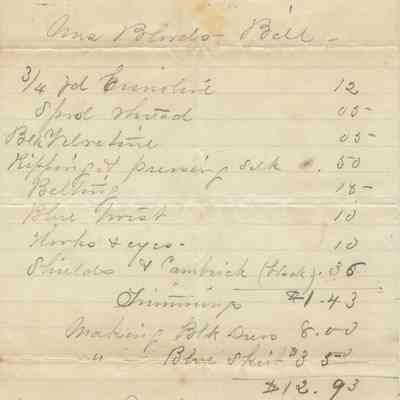 Mrs Blonds - Bill -
3/4 yd Crinoline 12
Spool thread 05
Blk Velveteen 05
Ripping & pressing silk . 50
Belting 15
Blue Twist 10
Hooks & eyes - 10
Shields & Cambrick (black) . 36
Trimmings $1.43
Making Blk Dress 8.00
" Blue Skirt $3 50
$12.93